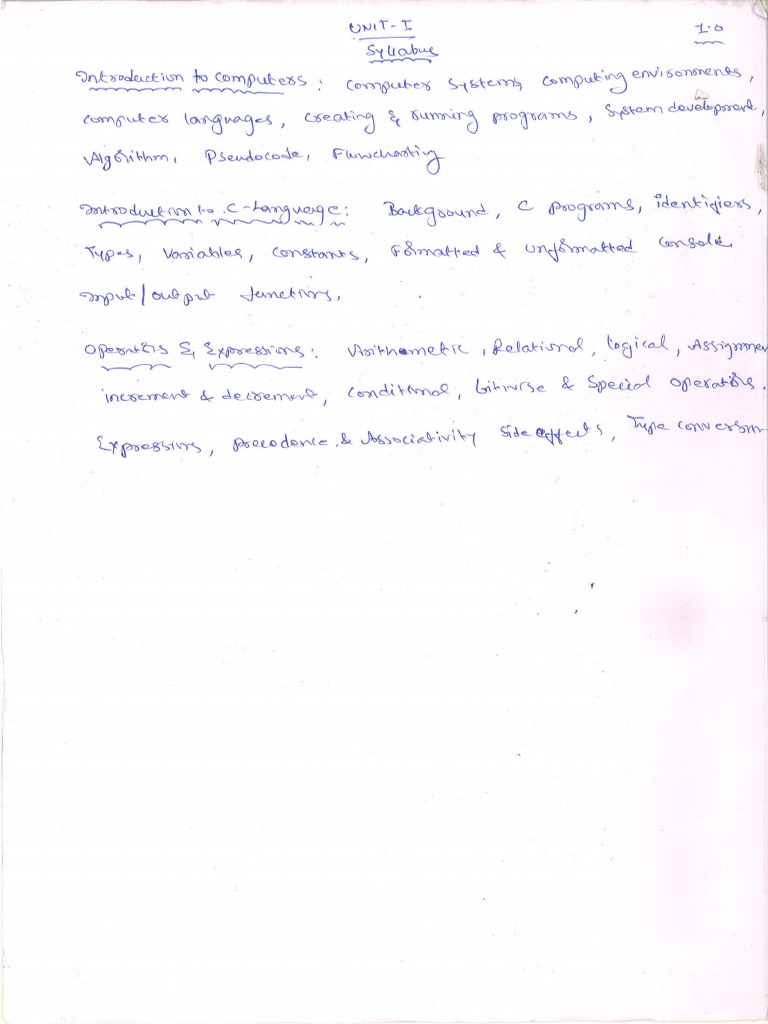 UNIT-I
1.0
Syllabus
Introduction to computers: Computer systems, computing environments,
computer languages, creating & running programs, System development,
Algorithm, Pseudocode, Flowcharting
Introduction to C-Language: Background, C programs, identifiers,
Types, Variables, constants, Formatted & unformatted Console
input/output functions.
Operators & Expressions: Arithmetic, Relational, logical, Assignmen
increment & decrement, conditional, bitwise & Special operators.
Expressions, precedence & Associativity side effects, Type conversion